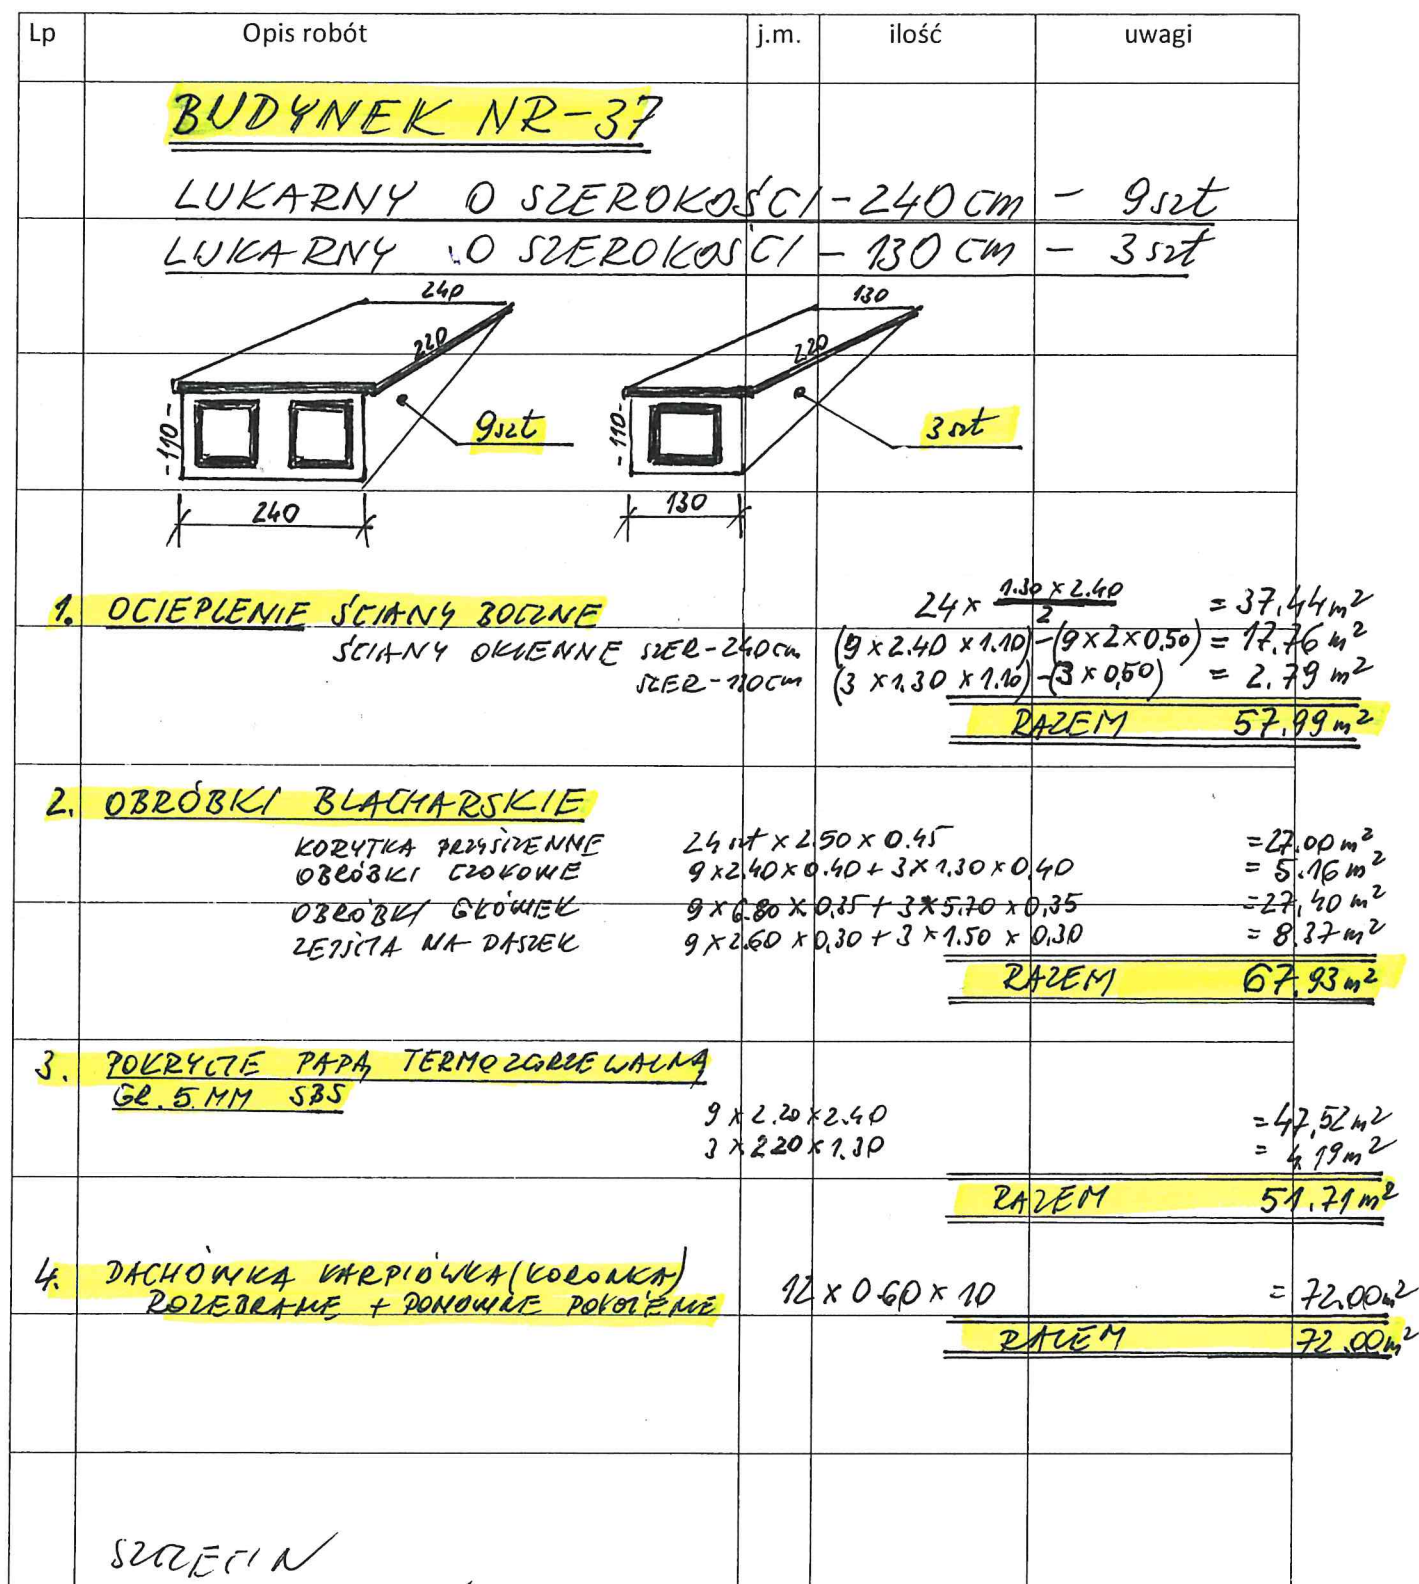 Lp Opis robót j.m. ilość uwagi
BUDYNEK NR-37
LUKARNY O SZEROKOŚCI - 240 cm - 9szt
LUKARNY O SZEROKOŚCI - 130 cm - 3szt
240 130
220 220
-110- 9szt -110- 3szt
240 130
1. OCIEPLENIE ŚCIANY BOCZNE 24 x 1.30 x 2.40 / 2 = 37.44 m²
ŚCIANY OKIENNE SZER-240cm (9 x 2.40 x 1.10)-(9 x 2 x 0,50) = 17.76 m²
SZER-130cm (3 x 1.30 x 1.10)-(3 x 0,50) = 2.79 m²
RAZEM 57.99 m²
2. OBRÓBKI BLACHARSKIE
KORYTKA PRZYŚCIENNE 24 szt x 2.50 x 0.45 = 27.00 m²
OBRÓBKI CZOŁOWE 9 x 2.40 x 0.40 + 3 x 1.30 x 0,40 = 5.16 m²
OBRÓBKI GŁÓWEK 9 x 6.80 x 0,35 + 3 x 5.70 x 0,35 = 27,40 m²
ZEJŚCIA NA DASZEK 9 x 2.60 x 0,30 + 3 x 1.50 x 0,30 = 8.37 m²
RAZEM 67.93 m²
3. POKRYCIE PAPĄ TERMOZGRZEWALNĄ
GR. 5 MM SBS
9 x 2.20 x 2.40 = 47,52 m²
3 x 2.20 x 1.30 = 4,19 m²
RAZEM 51.71 m²
4. DACHÓWKA KARPIÓWKA (KORONKA) 12 x 0.60 x 10 = 72.00 m²
ROZEBRANIE + PONOWNE POŁOŻENIE
RAZEM 72.00 m²
SZCZECIN